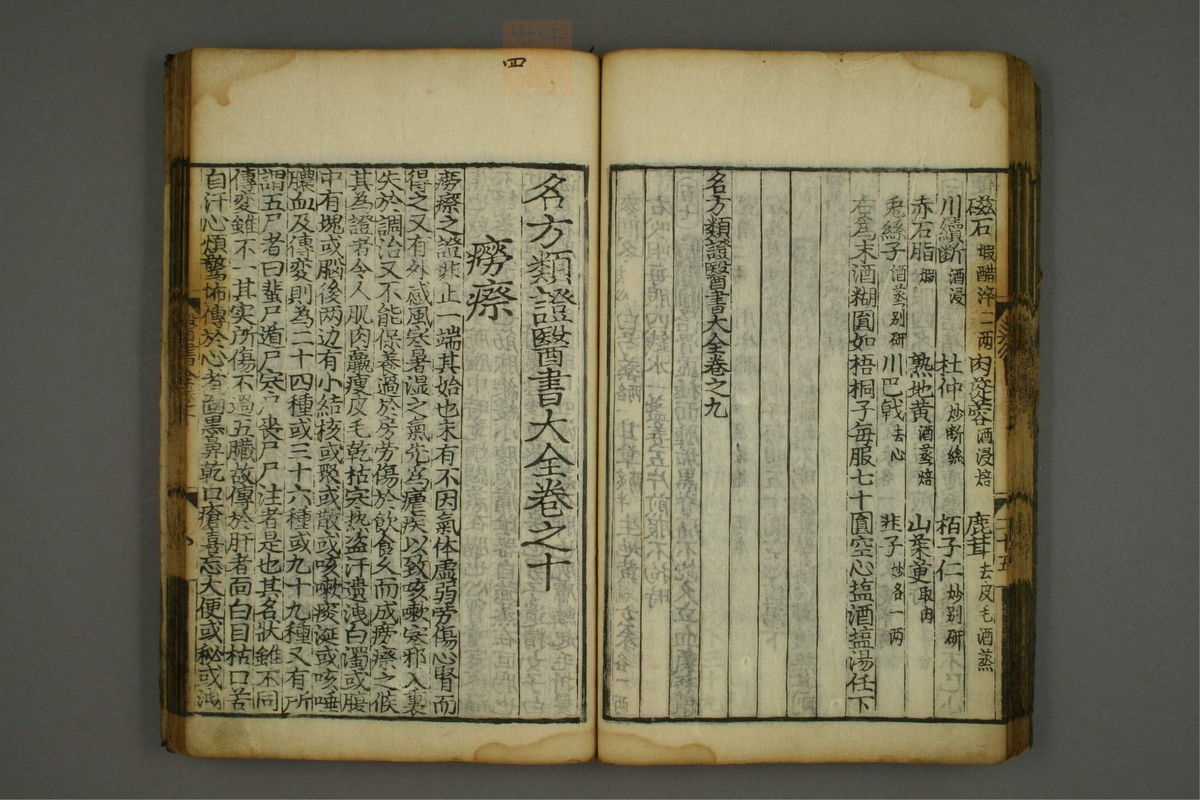 磁石煆醋淬二两 肉蓯蓉酒浸焙 鹿茸去皮毛酒蒸
川續斷酒浸 杜仲炒断絲 栢子仁炒别研
赤石脂煆 熟地黄酒蒸焙 山茱萸取肉
兎絲子酒蒸别研 川巴戟去心 韭子炒各一两
右爲末酒糊圓如梧桐子每服七十圓空心塩酒塩湯任下
名方類證醫書大全卷之九
四
名方類證醫書大全卷之十
癆瘵
癆瘵之證非止一端其始也未有不因氣体虚弱労傷心腎而
得之又有外感風寒暑湿之氣先爲瘧疾以致咳嗽寒邪入裏
失於調治又不能保養過於房労傷於飲食久而成癆瘵之候
其為證者令人肌肉羸瘦皮毛乾枯寒热盗汗遺洩白濁或腹
中有塊或脳後两边有小結核或聚或散或咳嗽痰涎或咳唾
膿血及傳变則為二十四種或三十六種或九十九種又有所
謂五尸者曰蜚尸遁尸寒尸喪尸尸注者是也其名状雖不同
傳変雖不一其实所傷不過五臟故傳於肝者面白目枯口苦
自汗心煩驚怖傳於心者面黒鼻乾口瘡喜忘大便或秘或洩